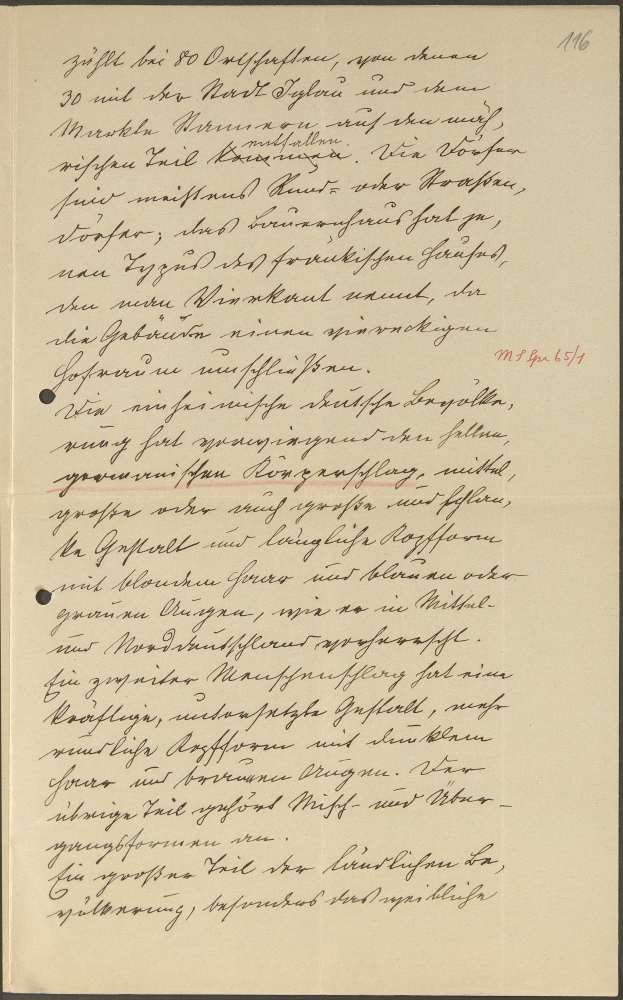 116
zählt bei 80 Ortschaften, von denen
30 mit der Stadt Iglau und dem
Markte Stannern auf den mäh,
entfallen.
rischen Teil kommen. Die Dörfer
sind meistens Rund= oder Straßen,
dörfer; das Bauernhaus hat je,
nen Typus des fränkischen Hauses,
den man Vierkant nennt, da
die Gebäude einen viereckigen
Hofraum umschließen.
M S Spr 65/1
Die einheimische deutsche Bevölke,
rung hat vorwiegend den hellen,
germanischen Körperschlag, mittel,
große oder auch große und schlan,
ke Gestalt und längliche Kopfform
mit blondem Haar und blauen oder
grauen Augen, wie er in Mittel-
und Norddeutschland vorherrscht.
Ein zweiter Menschenschlag hat eine
kräftige, untersetzte Gestalt, mehr
rundliche Kopfform mit dunklem
Haar und braunen Augen. Der
übrige Teil gehört Misch- und Über-
gangsformen an.
Ein großer Teil der ländlichen Be,
völkerung, besonders das weibliche